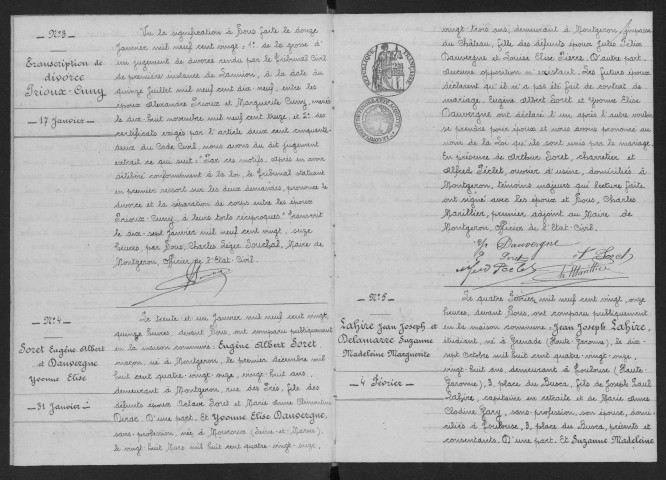 N°3
Transcription de
divorce
Prioux-Cuny
17 Janvier
Vu la signification à Nous faite le douze
Janvier mil neuf cent vingt: 1° de la grosse d'
un jugement de divorce rendu par le Tribunal Civil
de première instance de Lannion, à la date du
quinze Juillet mil neuf cent dix-neuf, entre les
époux Alexandre Prioux et Marguerite Cuny, mariés
le dix-huit novembre mil neuf cent treize, et 2° des
certificats exigés par l'article deux cent cinquante-
deux du Code Civil, nous avons du dit jugement
extrait ce qui suit: "Par ces motifs, après en avoir
délibéré conformément à la loi, le Tribunal statuant
en premier ressort sur les deux demandes, prononce le
divorce et la séparation de corps entre les époux
Prioux-Cuny, à leurs torts réciproques." Transcrit
le dix-sept Janvier mil neuf cent vingt, seize
heures, par Nous, Charles Léger Souchal, Maire de
Montgeron, Officier de l'Etat-Civil.
N°4
Soret Eugène Albert
et Dauvergne
Yvonne Elise
31 Janvier
Le trente et un Janvier mil neuf cent vingt,
quinze heures, devant Nous, ont comparu publiquement
en la maison commune: Eugène Albert Soret
maçon, né à Montgeron, le premier décembre mil
huit cent quatre-vingt-onze, vingt-huit ans,
demeurant à Montgeron, rue des Prés, fils des
défunts époux Octave Soret et Marie Anne Clémentine
D'une part. Et Yvonne Elise Dauvergne,
sans-profession, née à (Seine-et-Marne),
le vingt-huit Mars mil huit cent quatre-vingt-seize,
vingt trois ans, demeurant à Montgeron, Impasse
du Château, fille des défunts époux Jules Félix
Dauvergne et Louise Elise Pierre. D'autre part.
aucune opposition n'existant. Les futurs époux
déclarent qu'il n'a pas été fait de contrat de
mariage. Eugène Albert Soret et Yvonne Elise
Dauvergne ont déclaré l'un après l'autre vouloir
se prendre pour époux et nous avons prononcé au
nom de la Loi qu'ils sont unis par le mariage.
En présence de Arthur Soret, charretier et
Alfred Péclet, ouvrier d'usine, domiciliés à
Montgeron, témoins majeurs qui lecture faite
ont signé avec les époux et Nous, Charles
Marillier, premier adjoint au Maire de
Montgeron, Officier de l'Etat-Civil.
RÉPUBLIQUE FRANÇAISE
Y Dauvergne
E Soret
A Soret
N°5
Lahire Jean Joseph et
Delamarre Suzanne
Madeleine Marguerite
4 Février
Le quatre Février mil neuf cent vingt, onze
heures, devant Nous, ont comparu publiquement
en la maison commune: Jean Joseph Lahire,
étudiant, né à Grenade (Haute-Garonne), le dix-
sept Octobre mil huit cent quatre-vingt-onze,
vingt-huit ans, demeurant à Toulouse (Haute-
Garonne), 3, place du Busca, fils de Joseph Paul
Lahire, capitaine en retraite et de Marie Anne
Clodine Gary, sans-profession, son épouse, domi-
ciliés à Toulouse, 3, place du Busca, présents et
consentants. D'une part. Et Suzanne Madeleine